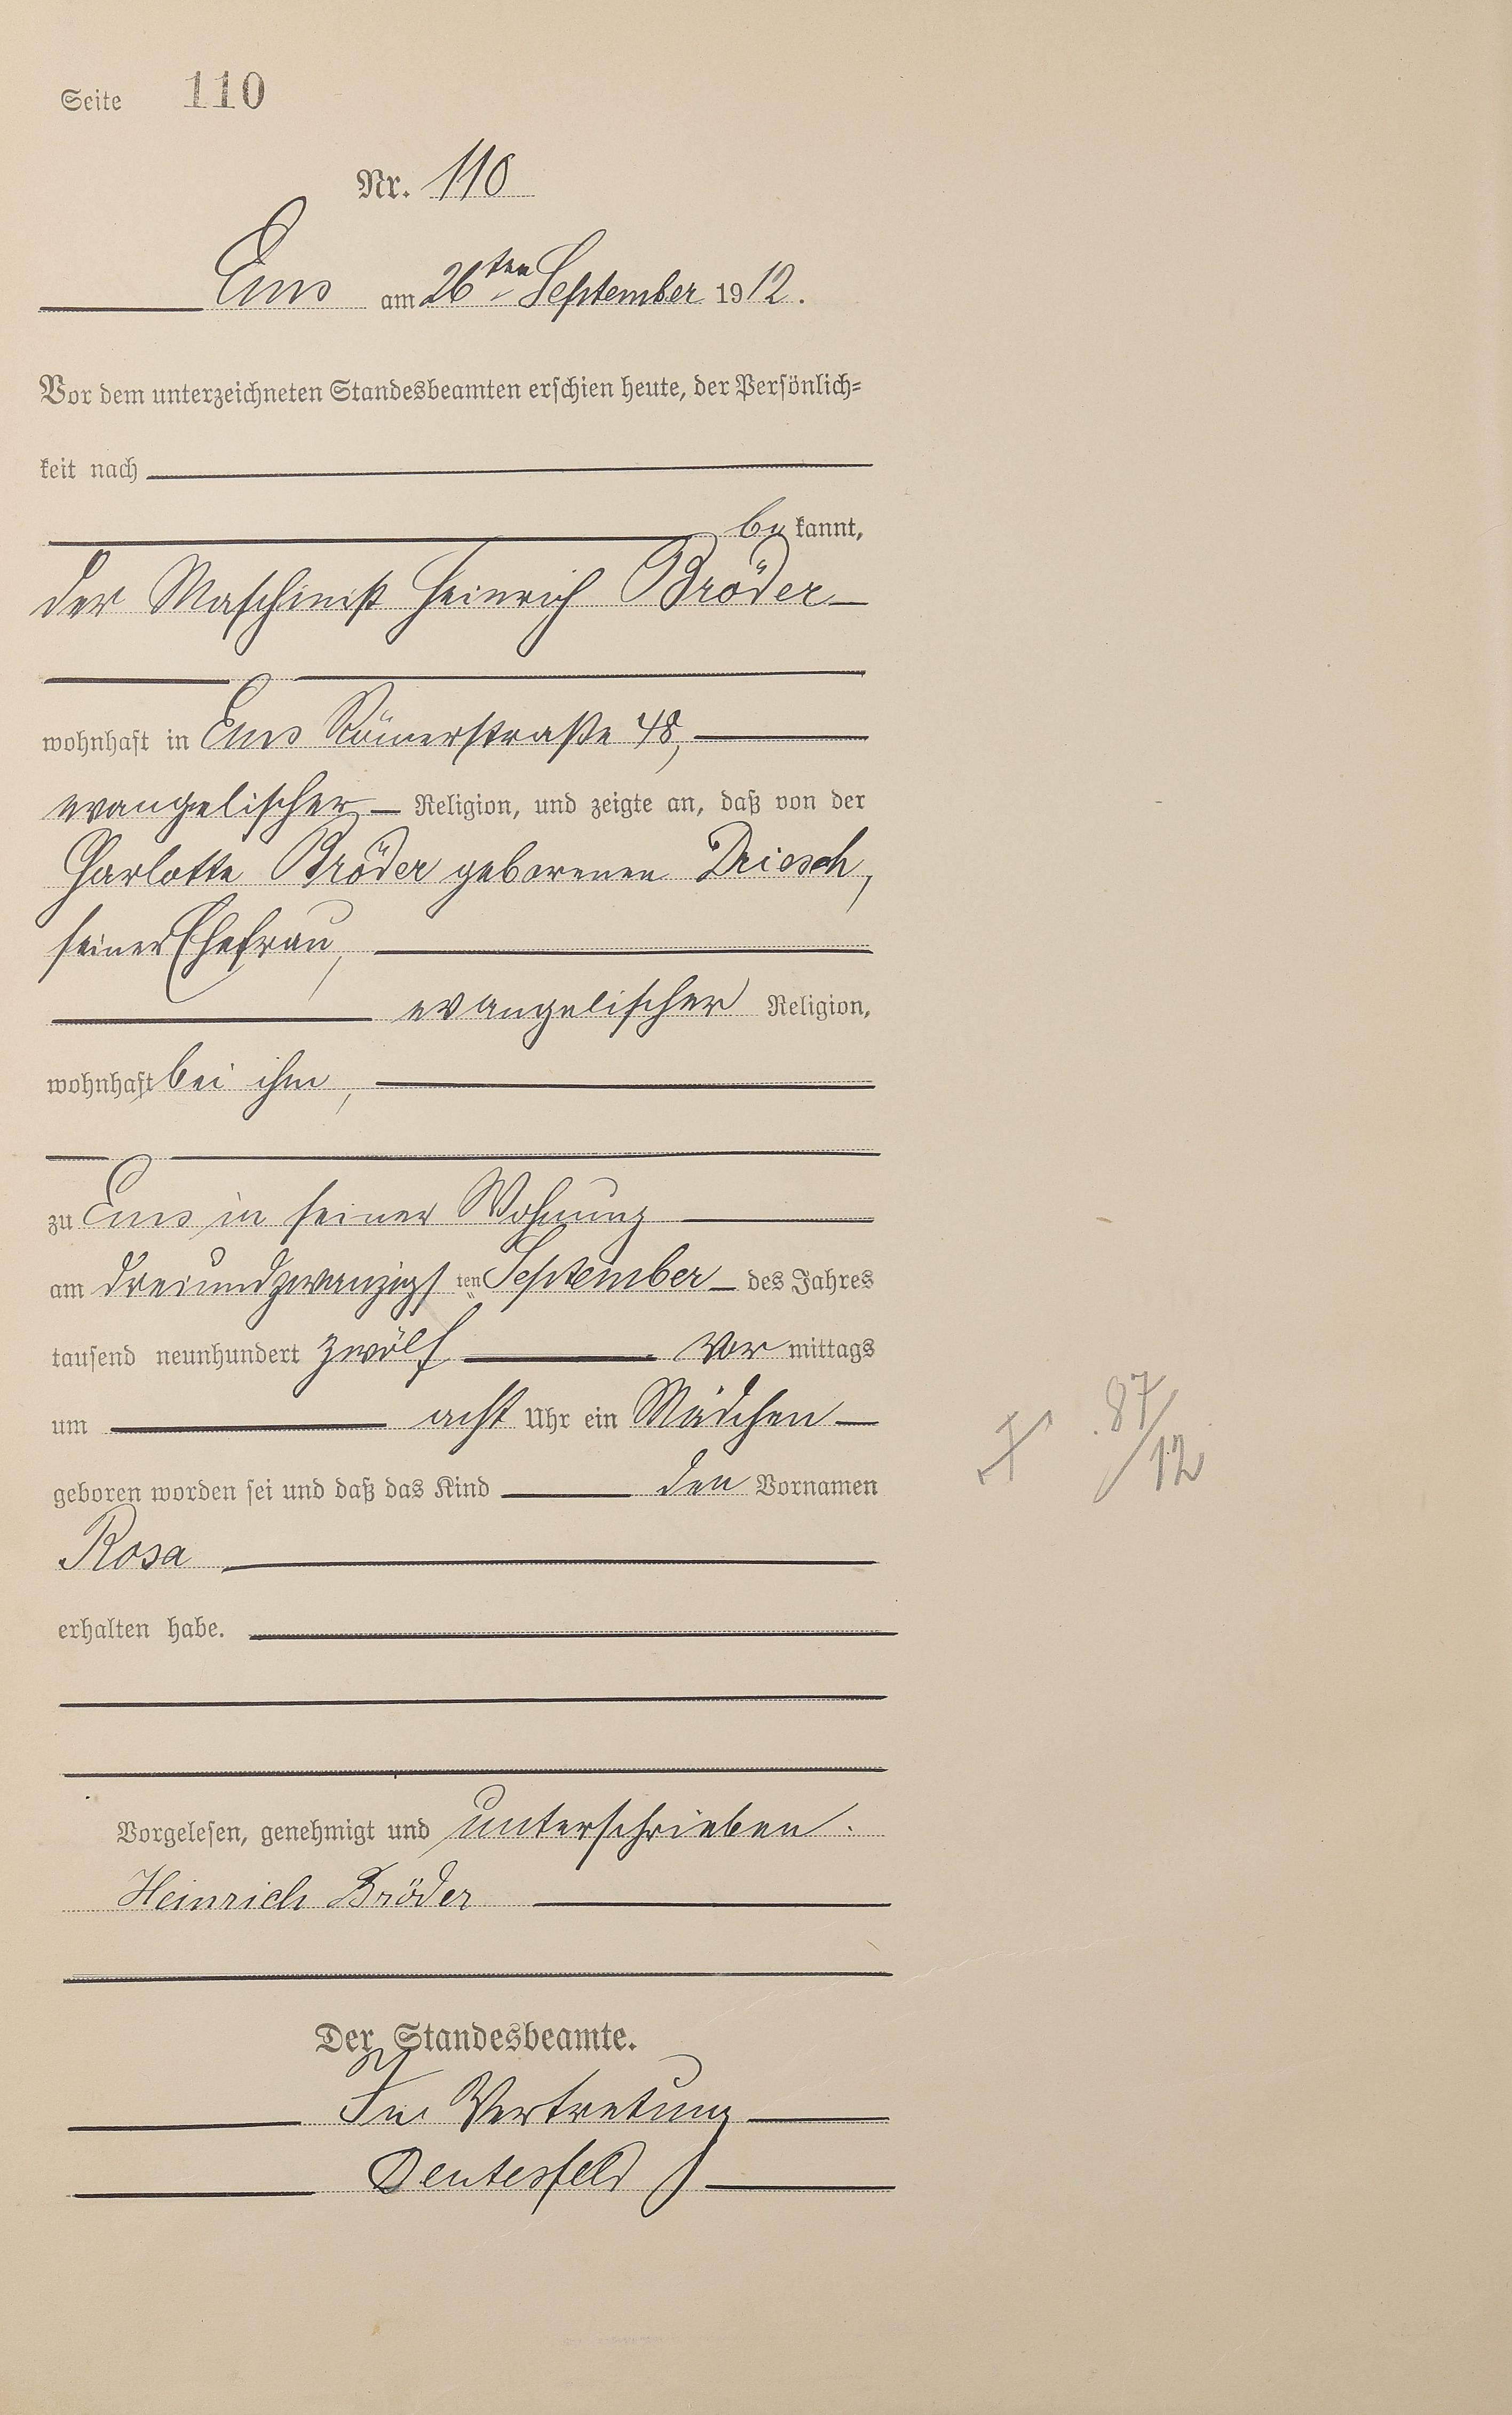 Seite 110
Nr. 110
Ems am 26ten September 1912.
Vor dem unterzeichneten Standesbeamten erschien heute, der Persönlich-
keit nach
bekannt,
der Maschinist Heinrich Bröder
wohnhaft in Ems Römerstraße 48,
evangelischer Religion, und zeigte an, daß von der
Charlotte Bröder geborenen Driesch,
seiner Ehefrau,
evangelischer Religion,
wohnhaft bei ihm,
zu Ems in seiner Wohnung
am dreiundzwanzigsten September des Jahres
tausend neunhundert zwölf Vormittags
um acht Uhr ein Mädchen
geboren worden sei und daß das Kind den Vornamen
Rosa
erhalten habe.
Vorgelesen, genehmigt und unterschrieben.
Heinrich Bröder
Der Standesbeamte.
In Vertretung
87/12